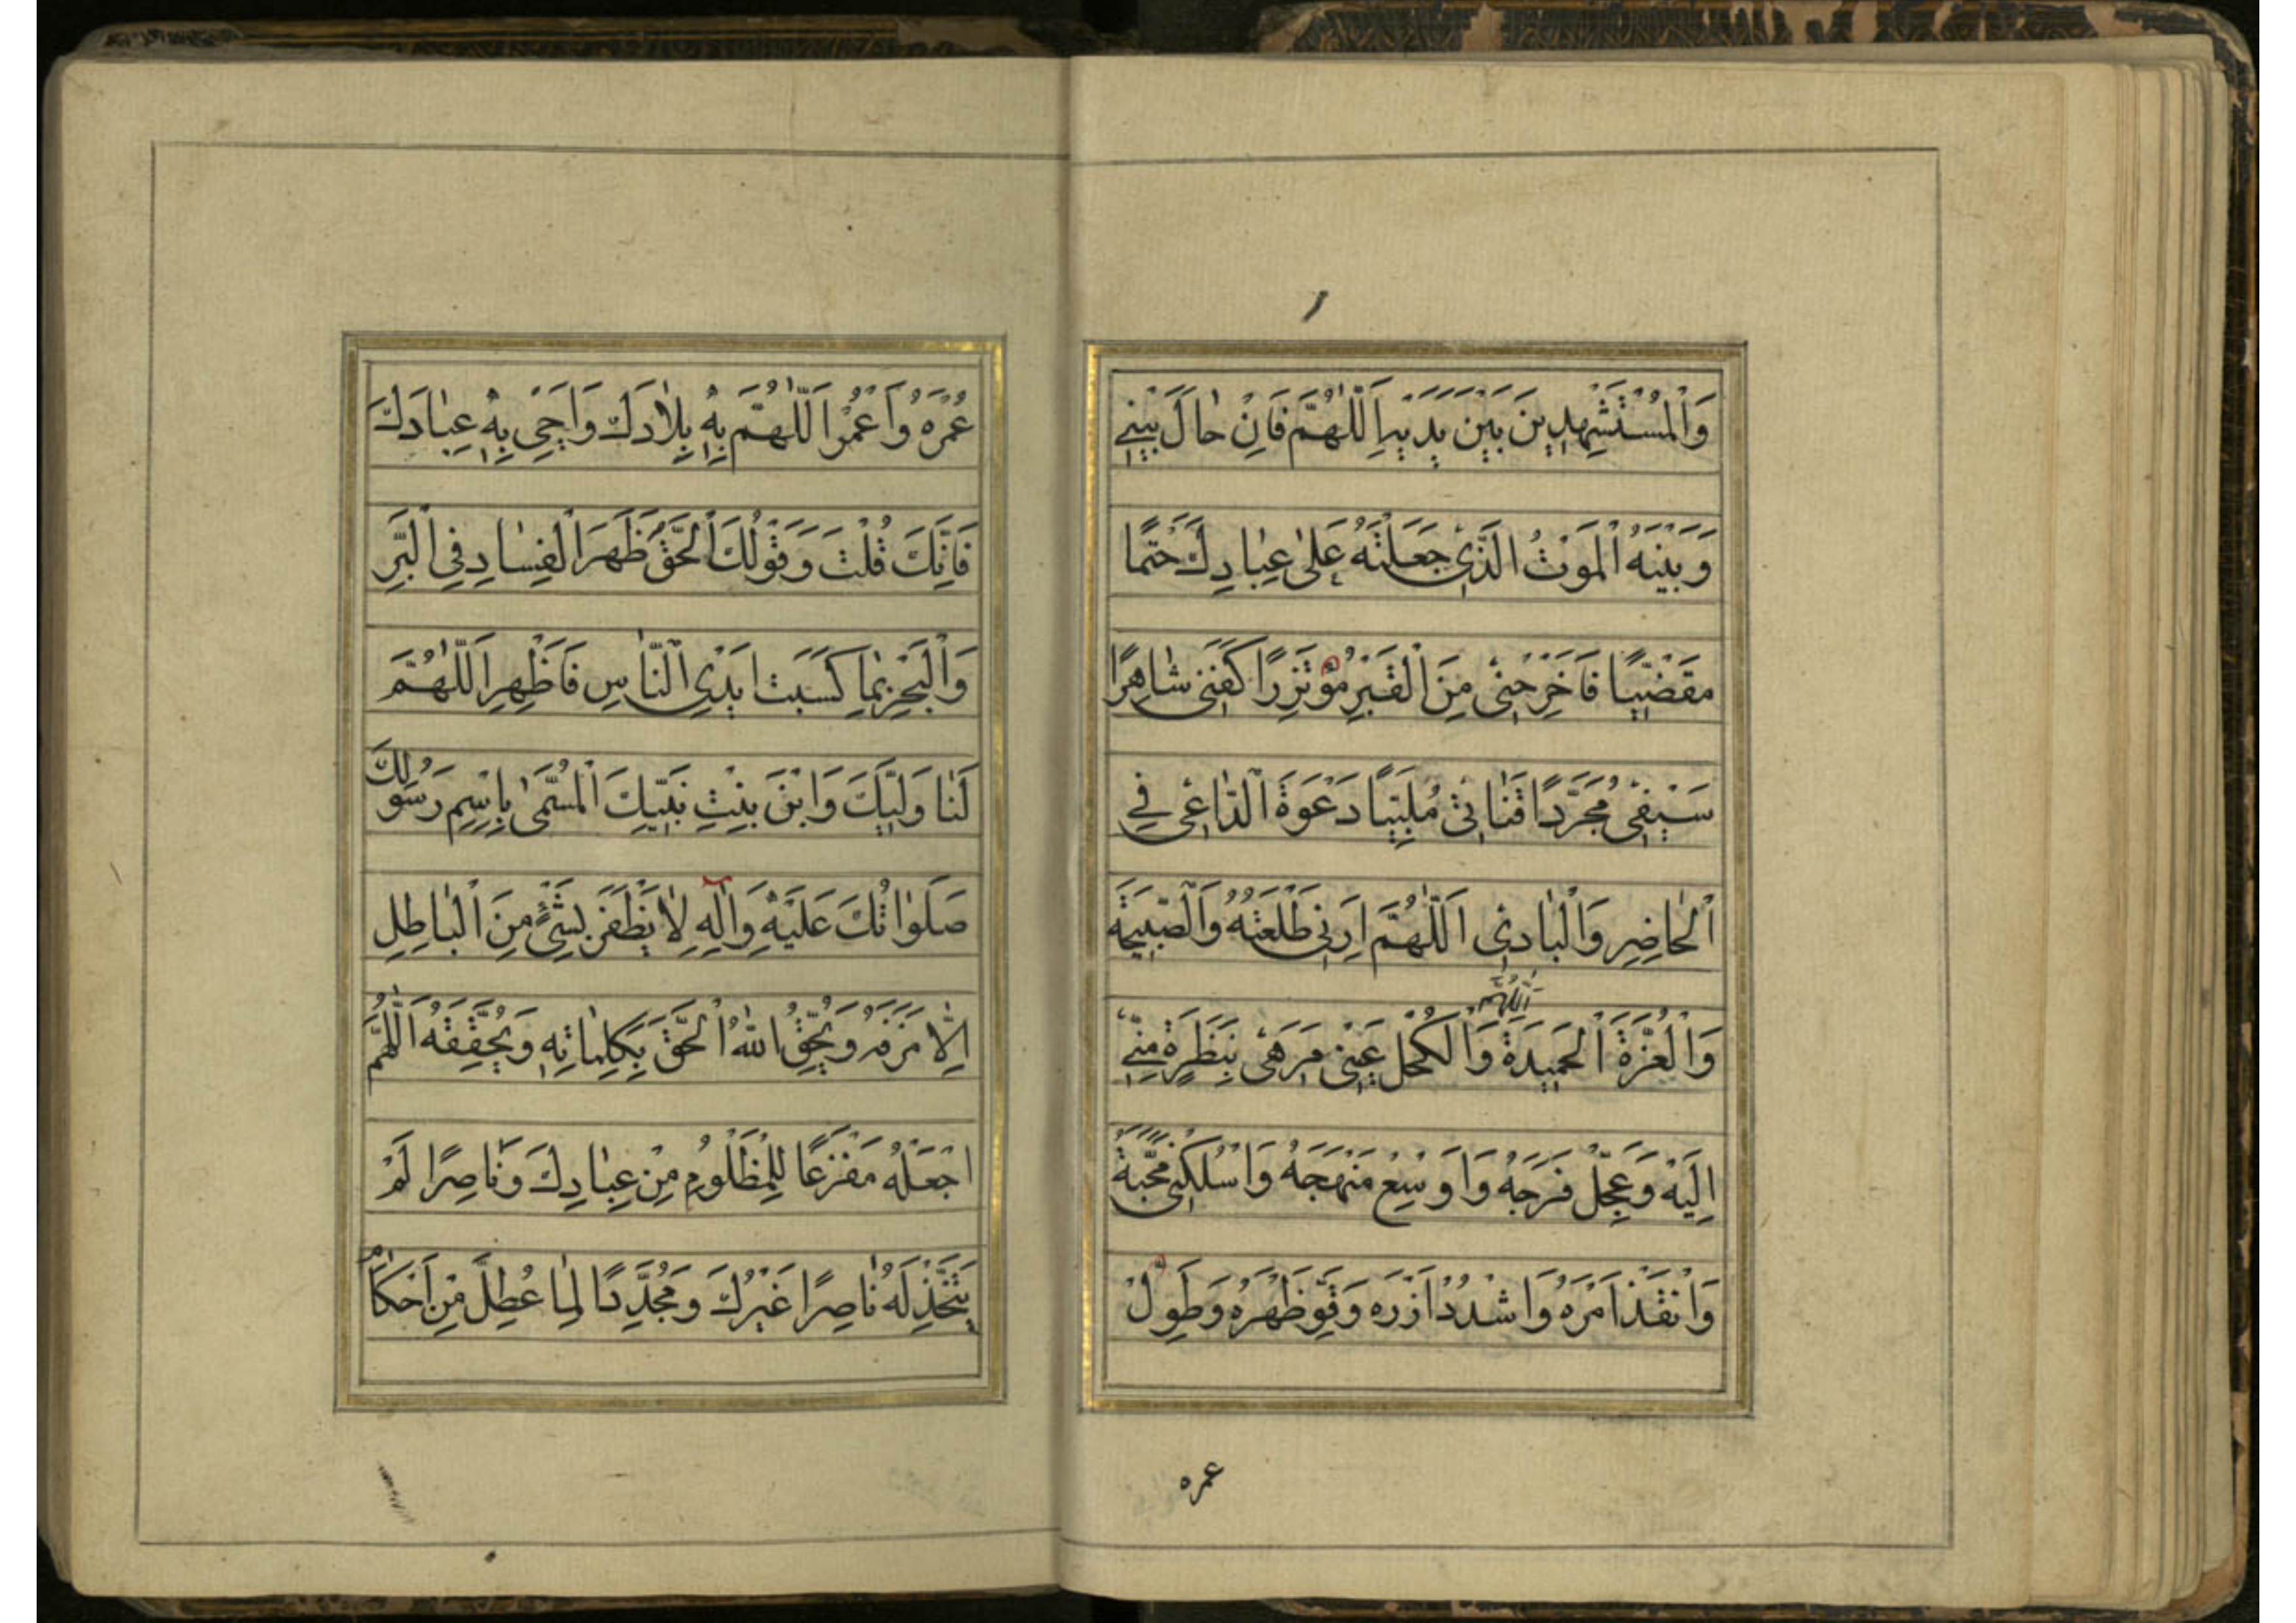 وَالْمُسْتَشْهِدِينَ بَيْنَ يَدَيْهِ اَللّٰهُمَّ فَاِنْ حَالَ بَيْنِي
وَبَيْنَهُ الْمَوْتُ الَّذِي جَعَلْتَهُ عَلٰى عِبَادِكَ حَتْمًا
مَقْضِيًّا فَاَخْرِجْنِي مِنَ الْقَبْرِ مُؤْتَزِرًا كَفَنِي شَاهِرًا
سَيْفِي مُجَرَّدًا قَنَاتِي مُلَبِّيًا دَعْوَةَ الدَّاعِي فِي
الْحَاضِرِ وَالْبَادِي اَللّٰهُمَّ اَرِنِي طَلْعَتَهُ وَالصَّبِيحَةَ
اَللّٰهُمَّ
وَالْغُرَّةَ الْحَمِيدَةَ وَاكْحُلْ عَيْنِي مَرَهِي بِنَظْرَةٍ مِنِّي
اِلَيْهِ وَعَجِّلْ فَرَجَهُ وَاَوْسِعْ مَنْهَجَهُ وَاسْلُكْنِي مَحَجَّةَ
وَانْفُذْ اَمْرَهُ وَاشْدُدْ اَزْرَهُ وَقَوِّ ظَهْرَهُ وَطَوِّلْ
عمره
عُمْرَهُ وَاعْمُرْ اَللّٰهُمَّ بِهِ بِلَادَكَ وَاَحْيِ بِهِ عِبَادَكَ
فَاِنَّكَ قُلْتَ وَقَوْلُكَ الْحَقُّ ظَهَرَ الْفِسَادِ فِي الْبَرِّ
وَالْبَحْرِ بِمَا كَسَبَتْ اَيْدِي النَّاسِ فَاَظْهِرِ اَللّٰهُمَّ
لَنَا وَلِيَّكَ وَابْنَ بِنْتِ نَبِيِّكَ الْمُسَمّٰى بِاِسْمِ رَسُولِكَ
صَلَوَاتُكَ عَلَيْهِ وَاٰلِهِ لَا يَظْفَرَ بِشَيْءٍ مِنَ الْبَاطِلِ
اِلَّا مَزَّقَهُ وَيُحِقُّ اللّٰهُ الْحَقَّ بِكَلِمَاتِهِ وَيُحَقِّقَهُ اَللّٰهُمَّ
اجْعَلْهُ مَفْزَعًا لِلْمَظْلُومِ مِنْ عِبَادِكَ وَنَاصِرًا لَمْ
يَتَّخِذْ لَهُ نَاصِرًا غَيْرَكَ وَمُجَدِّدًا لِمَا عُطِّلَ مِنْ اَحْكَامِ